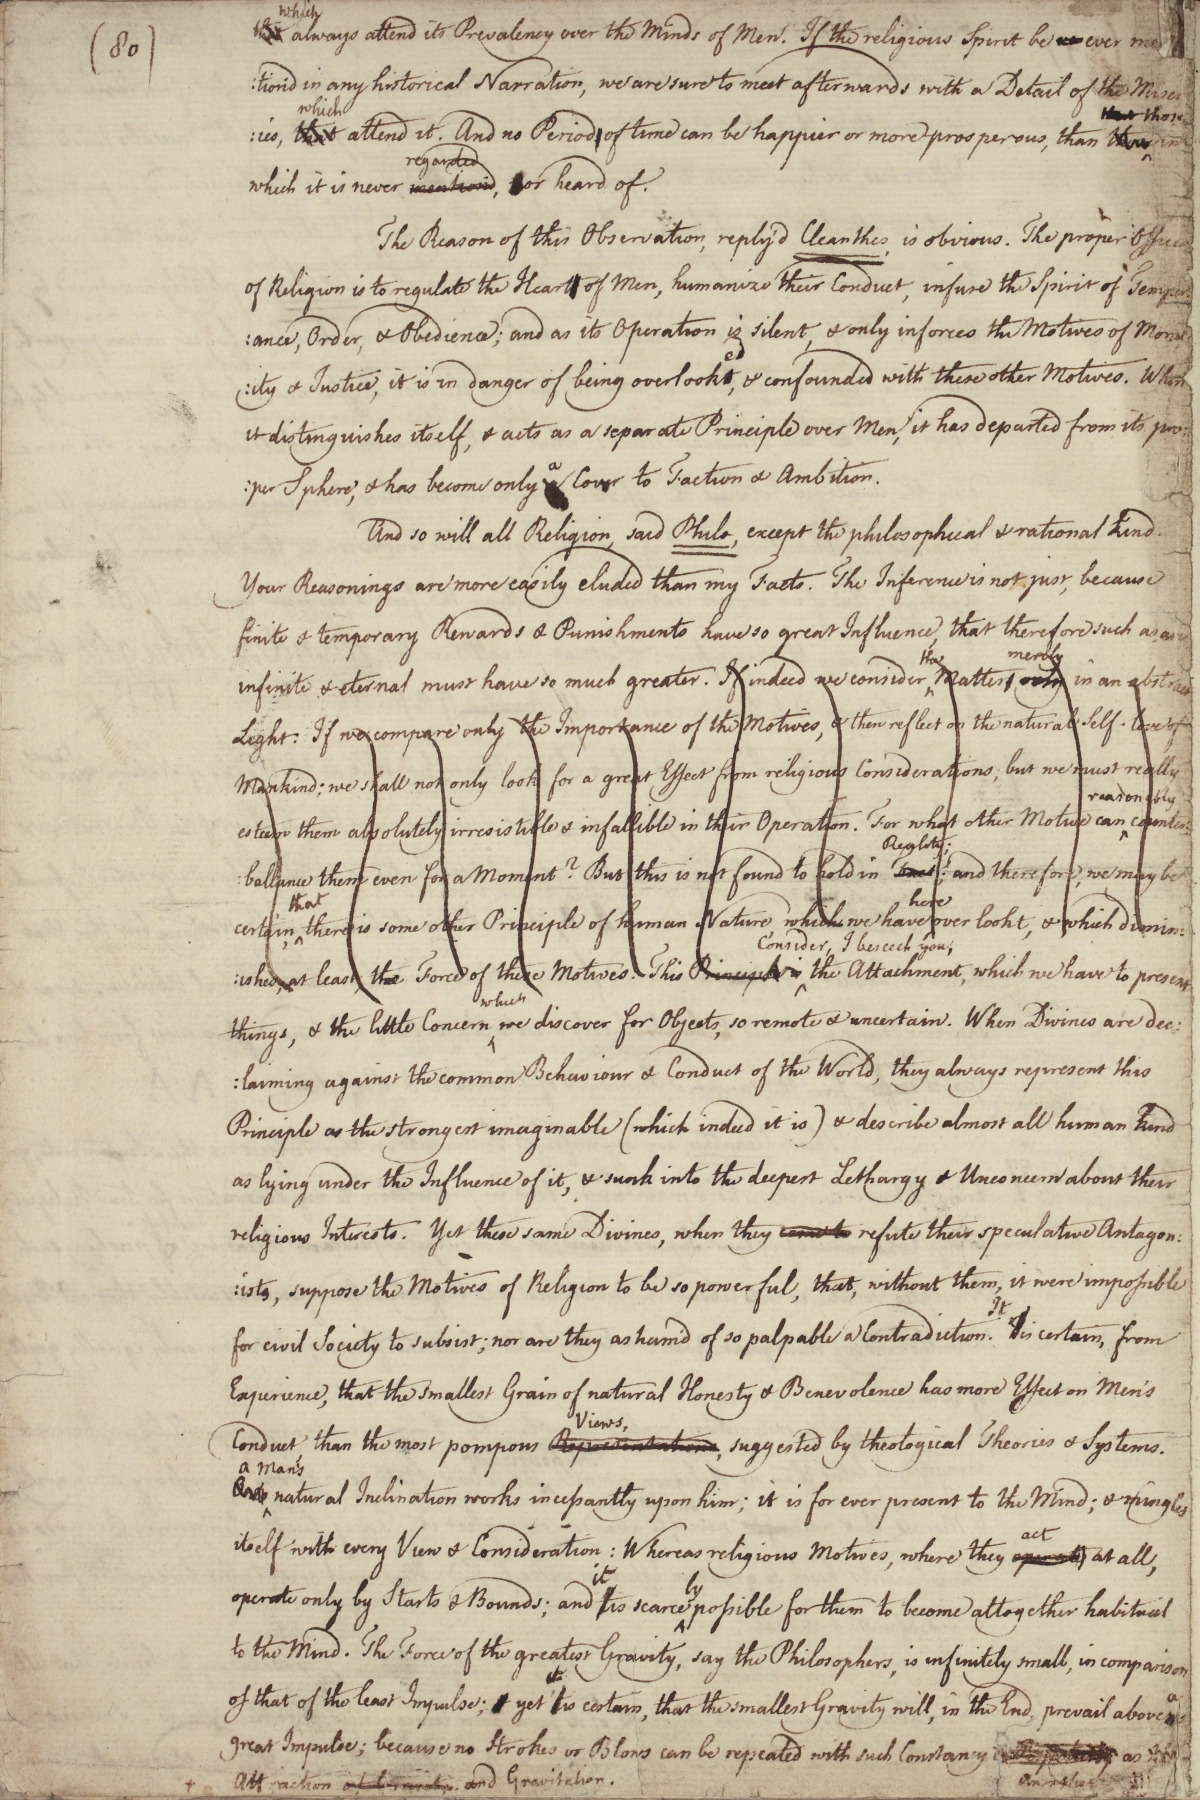 (80)
which
always attend its Prevalency over the Minds of Men. If the religious Spirit be ever men
:tion'd in any historical Narration, we are sure to meet afterwards with a Detail of the Miser
which that those
:ies, that attend it. And no Period of time can be happier or more prosperous, than those in
regarded
which it is never mention'd, or heard of.
The Reason of this Observation, reply'd Cleanthes, is obvious. The proper Office
of Religion is to regulate the Heart of Men, humanize their Conduct, infuse the Spirit of Temper
:ance, Order, & Obedience; and as its Operation is silent, & only inforces the Motives of Moral
ed
:ity & Justice, it is in danger of being overlookt, & confounded with these other Motives. When
it distinguishes itself, & acts as a separate Principle over Men, it has departed from its pro:
a
:per Sphere, & has become only a Cover to Faction & Ambition.
And so will all Religion, said Philo, except the philosophical & rational kind.
Your Reasonings are more easily eluded than my Facts. The Inference is not just, because
finite & temporary Rewards & Punishments have so great Influence, that therefore such as are
the merely
infinite & eternal must have so much greater. If indeed we consider Matters only in an abstract
Light: If we compare only the Importance of the Motives, & then reflect on the natural Self-love of
Mankind; we shall not only look for a great Effect from religious Considerations; but we must really
reasonably
esteem them absolutely irresistible & infallible in their Operation. For what other Motive can counter:
Reality;
:ballance them even for a Moment? But this is not found to hold in fact; and therefore, we may be
that here
certain, there is some other Principle of human Nature which we have over lookt, & which dimin:
Consider, I beseech you,
:ishes, at least, the Force of these Motives. This Principle is the Attachment, which we have to present
which
things, & the little Concern we discover for Objects, so remote & uncertain. When Divines are dec:
:laiming against the common Behaviour & Conduct of the World, they always represent this
Principle as the strongest imaginable (which indeed it is) & describe almost all human kind
as lying under the Influence of it, & sunk into the deepest Lethargy & Unconcern about their
religious Interests. Yet these same Divines, when they come to refute their speculative Antagon:
:ists, suppose the Motives of Religion to be so powerful, that, without them, it were impossible
It
for civil Society to subsist; nor are they asham'd of so palpable a Contradiction. Tis certain, from
Experience, that the smallest Grain of natural Honesty & Benevolence has more Effect on Men's
Views,
Conduct than the most pompous Representations, suggested by theological Theories & Systems.
a Man's
natural Inclination works incessantly upon him; it is for ever present to the Mind; & mingles
act
itself with every View & Consideration: Whereas religious Motives, where they operate at all,
it ly
operate only by Starts & Bounds; and tis scarce possible for them to become altogether habitual
to the Mind. The Force of the greatest Gravity, say the Philosophers, is infinitely small, in comparison
it
of that of the least Impulse; yet tis certain, that the smallest Gravity will, in the End, prevail above a
great Impulse; because no Strokes or Blows can be repeated with such Constancy as
Attraction of Gravity and Gravitation.